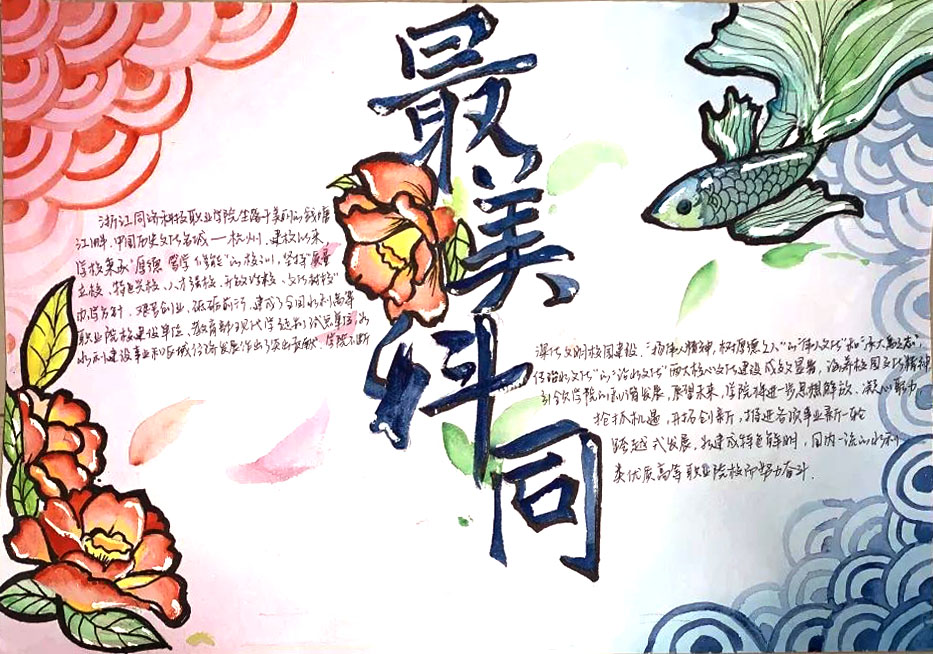 最美科同
浙江同济科技职业学院坐落于美丽的钱塘
江畔、中国历史文化名城——杭州。建校以来,
学校秉承"厚德 笃学 的校训,坚持"质量
立校、特色兴校、人才强校、开放活校、文化树校"
办学方针,艰苦创业,砥砺前行,建成了全国水利高等
职业院校建设单位、教育部现代学徒制试点单位,为
水利建设事业和区域经济发展作出了突出贡献。学院不断
深化文明校园建设,
的"治水文化"两大核心文化建设成效显著,涵养校园文化精神
到今天学院的和谐发展,展望未来,学院将进一步思想解放,凝心聚力,
抢抓机遇,开拓创新,推进各项事业新一轮
跨越式发展,为建成特色鲜明,国内一流的水利
类优质高等职业院校而努力奋斗.